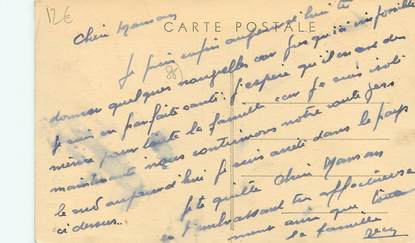 12€
CARTE POSTALE
Chère Maman
Je puis enfin aujourd'hui te
donner quelques nouvelles car jusqu'ici impossible
je suis en parfaite santé. J'espère qu'il en est de
même pour toute la famille car je suis isolé
maintenant nous continuons notre route vers
le sud aujourd'hui je suis arrêté dans le pays
ci dessus.
Je te quitte Chère Maman
en t'embrassant affectueuse
ment ainsi que toute
la famille